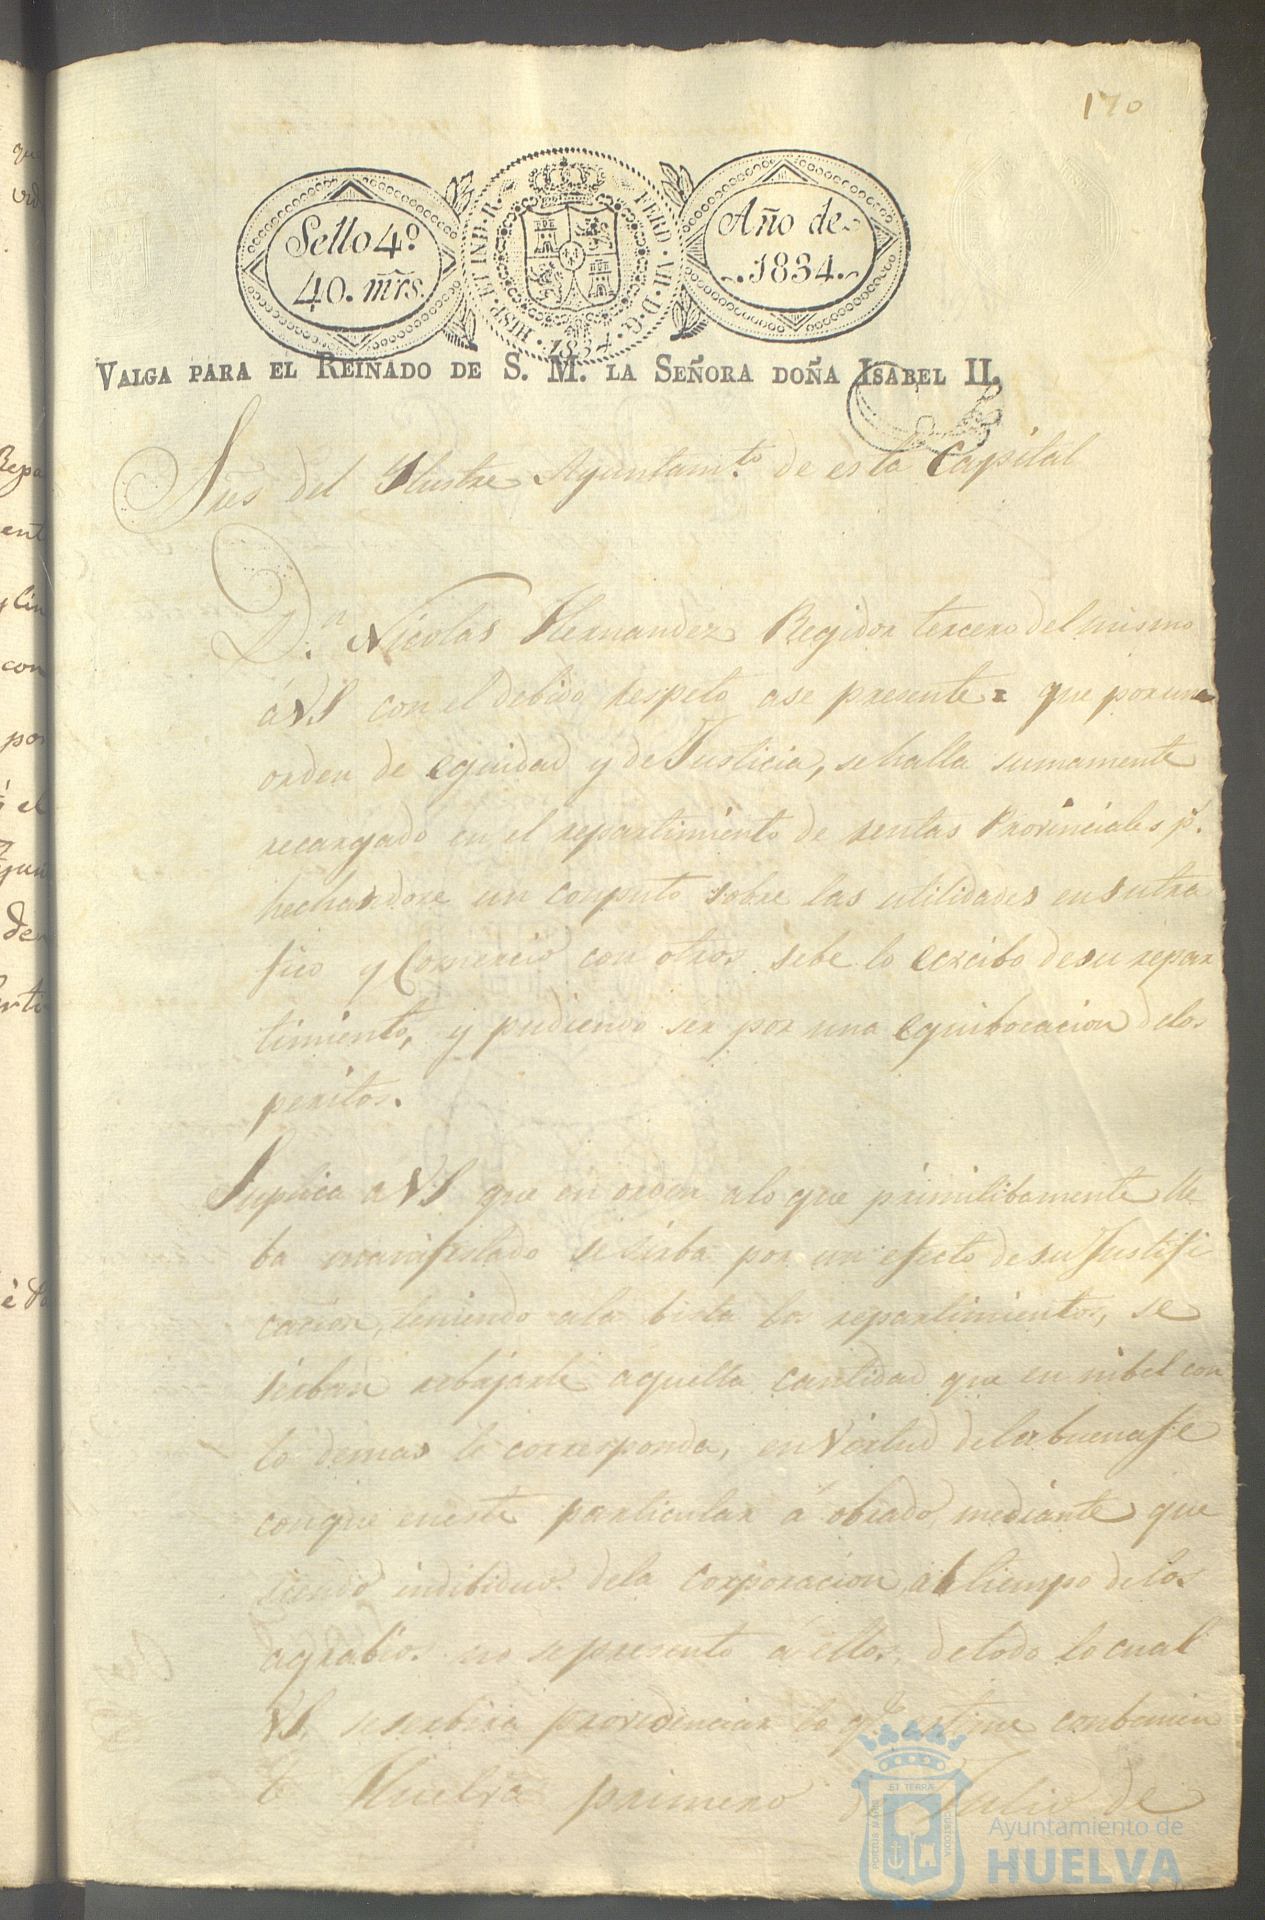 170
Sello 4º
40. mrs.
HISP. ET IND. R.
FERD. VII. D. G.
1834.
Año de
1834.
VALGA PARA EL REINADO DE S. M. LA SEÑORA DOÑA ISABEL II.
Sres del Ilustre Ayuntam.to de esta Capital
D.n Nicolas Hernandez Regidor tercero del mismo
á VS con el debido respeto ase presente = que por una
orden de equidad y de Justicia, se halla sumamente
recargado en el repartimiento de rentas Provinciales p.r
hechandose un conputo sobre las utilidades en su tra
fico y Comercio con otros sebe lo ecxcibo de su repar
timiento, y pudiendo ser por una equibocacion de los
peritos.
Suplica a VS que en orden a lo que primitibamente lle
ba manifestado se sirba por un efecto de su Justifi
cacion, teniendo ala bista los repartimientos, se
sirban rebajarle aquella cantidad que en nibel con
lo demas le corresponda, en Virtud de la buena fe
conque eneste particular á obrado, mediante que
siendo indibiduo dela corporacion, al tiempo de los
agrabios no se presento á ellos, de todo lo cual
VS. se serbira providenciar lo q.e estime conbenien
te Huelva primero de Julio de
qu
Repa
ent
con
por
el
der
PORTUS MARIS
ET TERRÆ
CUSTODIA
Ayuntamiento de
HUELVA